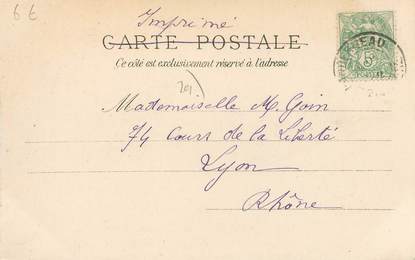 6 €
Imprimé
CARTE POSTALE
Ce côté est exclusivement réservé à l'adresse
Mademoiselle M. Goin
74 Cours de la Liberté
Lyon
Rhône